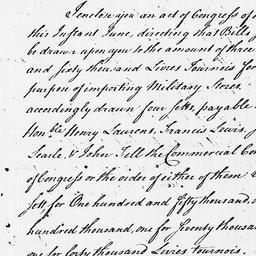 I enclose you an act of Congress of
this Instant June, directing that Bills
be drawn upon you to the amount of three
and sixty thousand Livres Tournois for
purpose of importing Military Stores.
accordingly drawn four setts, payable
Honble Henry Laurens, Francis Lewis,
Searle, & John Fell the Commercial Com
of Congress or the order of either of them
sett for One hundred and fifty thousand,
hundred thousand, one for Seventy thousan
one for forty thousand Livres Tournois.